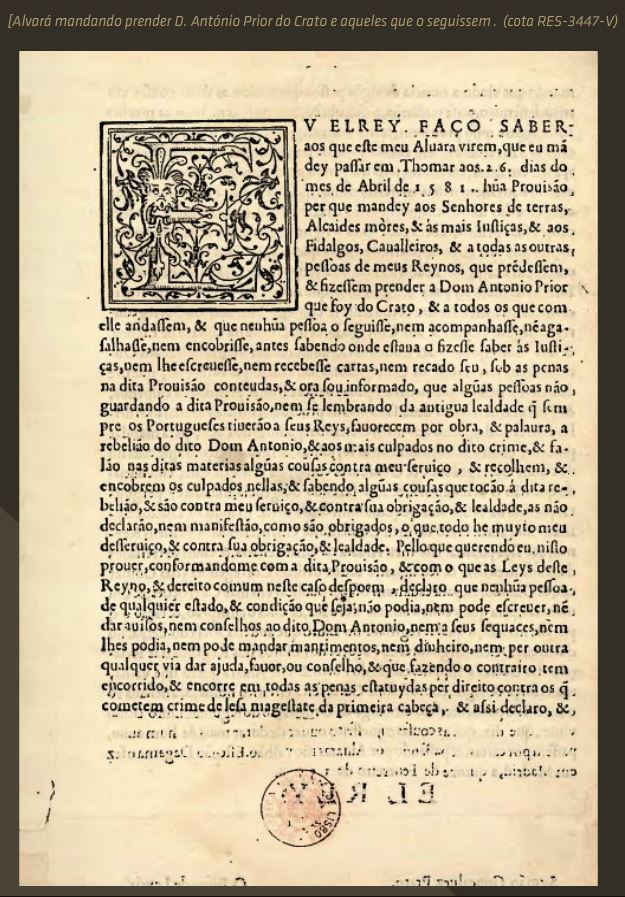 [Alvará mandando prender D. António Prior do Crato e aqueles que o seguissem . (cota RES-3447-V)
EV ELREY. FAÇO SABER
aos que eſte meu Aluara virem, que eu mã
dey paſſar em Thomar aos. 2 6. dias do
mes de Abril de 1 5 8 1 .. hũa Prouiſão,
per que mandey aos Senhores de terras,
Alcaides mòres, & às mais Iuſtiças, & aos
Fidalgos, Caualleiros, & a todas as outras
peſſoas de meus Reynos, que prẽdeſſem,
& fizeſſem prender a Dom Antonio Prior
que foy do Crato, & a todos os que com
elle andaſſem, & que nenhũa peſſoa o ſeguiſſe, nem acompanhaſſe, nẽ aga-
ſalhaſſe, nem encobriſſe, antes ſabendo onde eſtaua o fizeſſe ſaber às Iuſti-
ças, nem lhe eſcreueſſe, nem recebeſſe cartas, nem recado ſeu, ſob as penas
na dita Prouiſão conteudas, & ora ſou informado, que algũas peſſoas não
guardando a dita Prouiſão, nem ſe lembrando da antigua lealdade q̃ ſem
pre os Portugueſes tiuerão a ſeus Reys, fauorecem por obra, & palaura, a
rebelião do dito Dom Antonio, & aos mais culpados no dito crime, & fa-
lão nas ditas materias algũas couſas contra meu ſeruiço , & recolhem, &
encobrem os culpados nellas, & ſabendo algũas couſas que tocão á dita re-
belião, & são contra meu ſeruiço, & contra ſua obrigação, & lealdade, as não
declarão, nem manifeſtão, como são obrigados, o que todo he muyto meu
deſſeruiço, & contra ſua obrigação, & lealdade. Pello que querendo eu niſto
prouer, conformandome com a dita Prouiſão, & com o que as Leys deſte
Reyno, & dereito comum neſte caſo deſpoem , declaro que nenhũa peſſoa
de qualquier eſtado, & condição que ſeja, não podia, nem pode eſcreuer, nẽ
dar auiſos, nem conſelhos ao dito Dom Antonio, nem a ſeus ſequaces, nem
lhes podia, nem pode mandar mantimentos, nem dinheiro, nem per outra
qualquer via dar ajuda, fauor, ou conſelho, & que fazendo o contrairo tem
encorrido, & encorre em todas as penas eſtatuydas per direito contra os q̃
cometem crime de leſa mageſtate da primeira cabeça, & aſsi declaro, &
LISBO